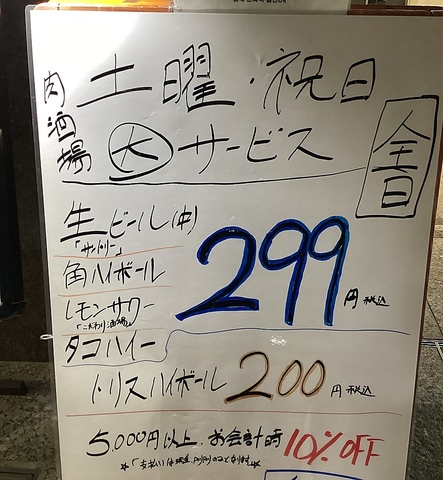 肉酒場
土曜・祝日
大サービス
全日
生ビール(中)
「サントリー」
角ハイボール
レモンサワー
「こだわり酒場」
タコハイー
299円税込
トリスハイボール 200円税込
5,000円以上、お会計時 10%OFF